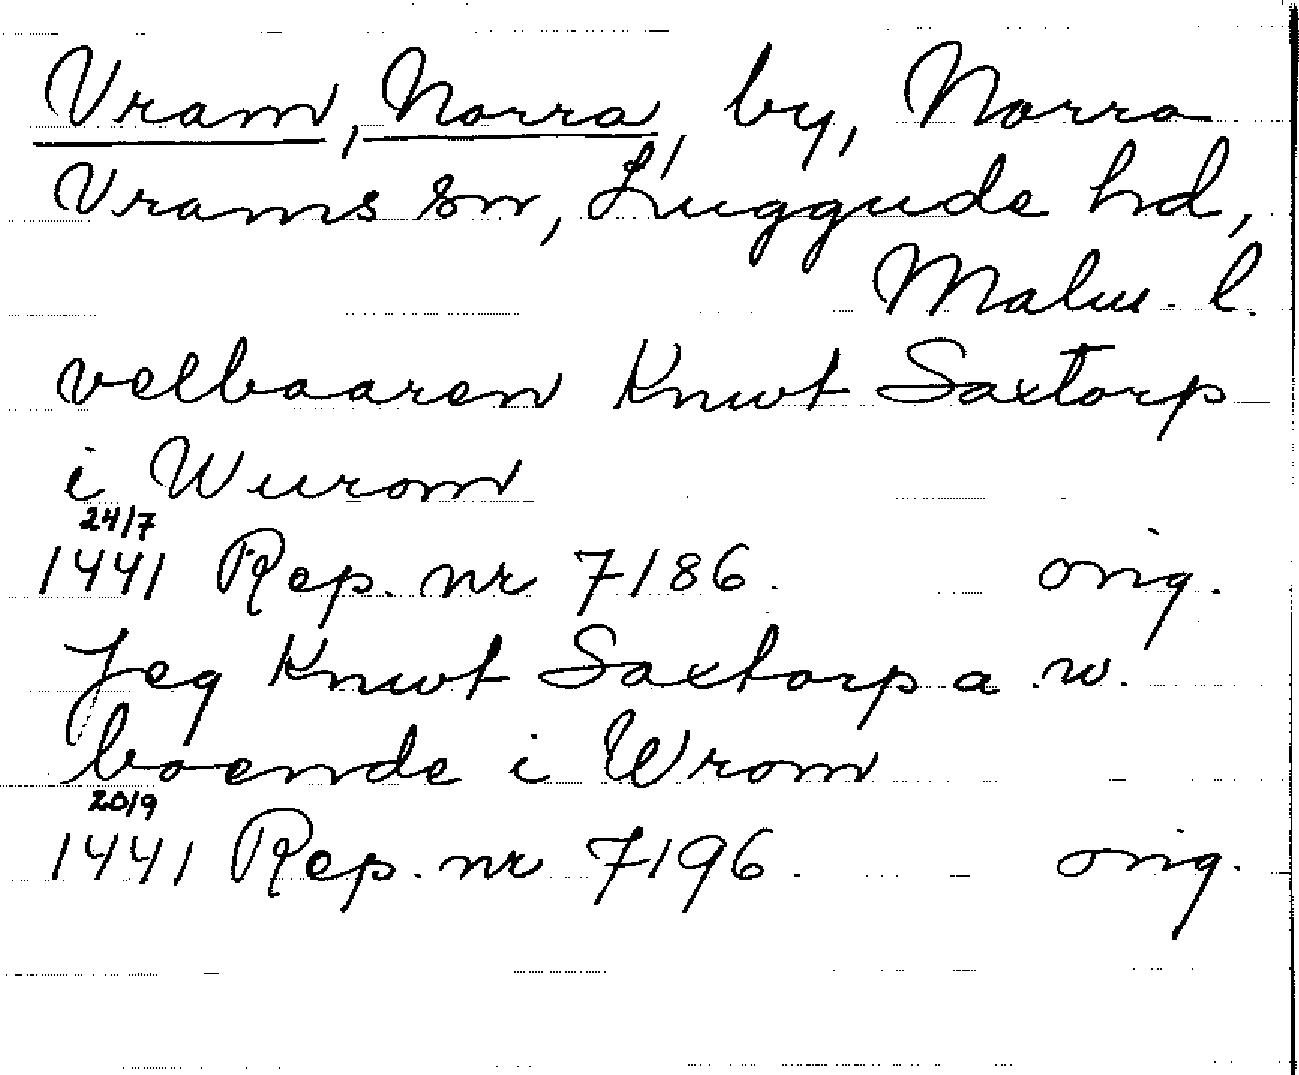 Vram, Norra, by, Norra
Vrams sn, Luggude hd,
Malm. l.
velbaaren Knwt Saxtorp
i Wurom
24/7
1441 Rep. nr 7186. orig.
Jeg Knwt Saxtorp a w.
boende i Wrom
20/9
1441 Rep. nr 7196. orig.